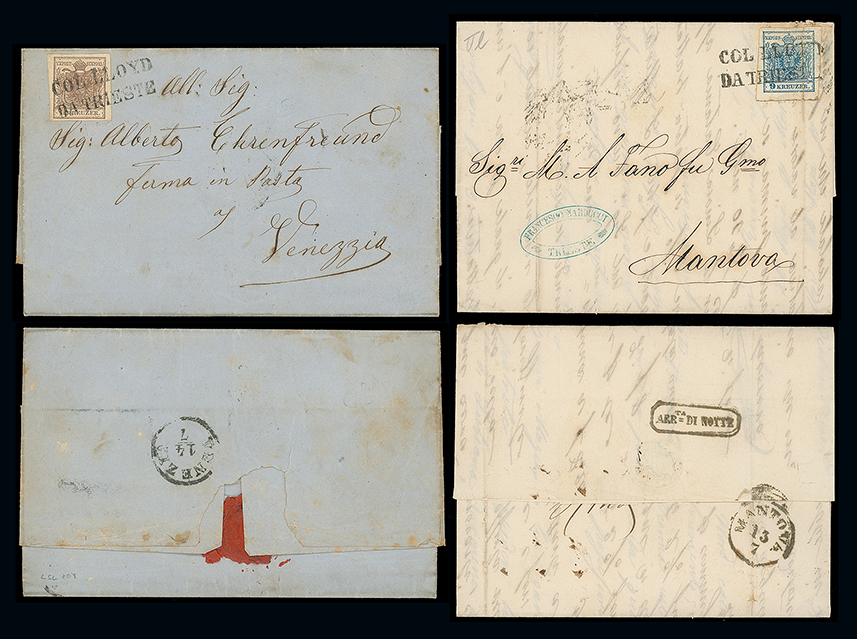 COL LLOYD
DA TRIESTE
KREUZER.
All: Sig:
Sig: Alberto Ehrenfreund
ferma in Posta
a/
Venezzia
COL LLOYD
DA TRIESTE
9 KREUZER.
Sig.ri M. A Fano fu Gmo
FRANCESCO NARDUCCI
TRIESTE
Mantova
VENEZIA
14
7
ARR.TA DI NOTTE
MANTOVA
13
7